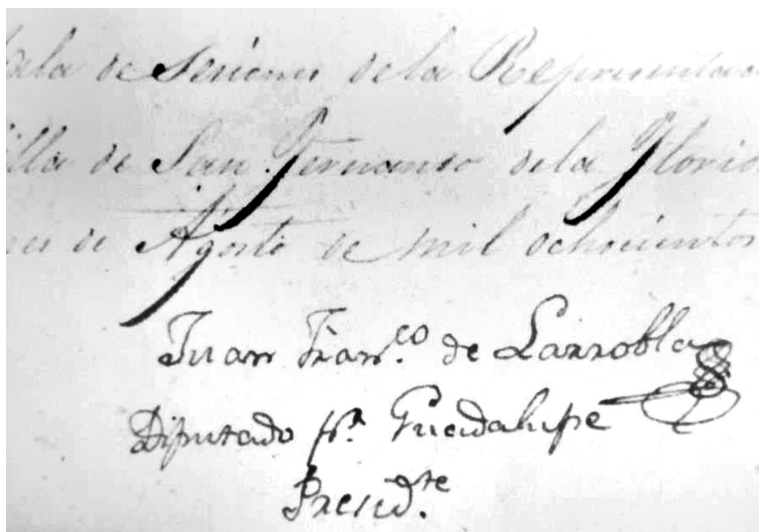 Sala de Seciones de la Representac
illa de San Fernando dela Florid
ces de Agosto de mil ochocientos
Juan Fran.co de Larrobla
Diputado pr. Guadalupe
Presid.te